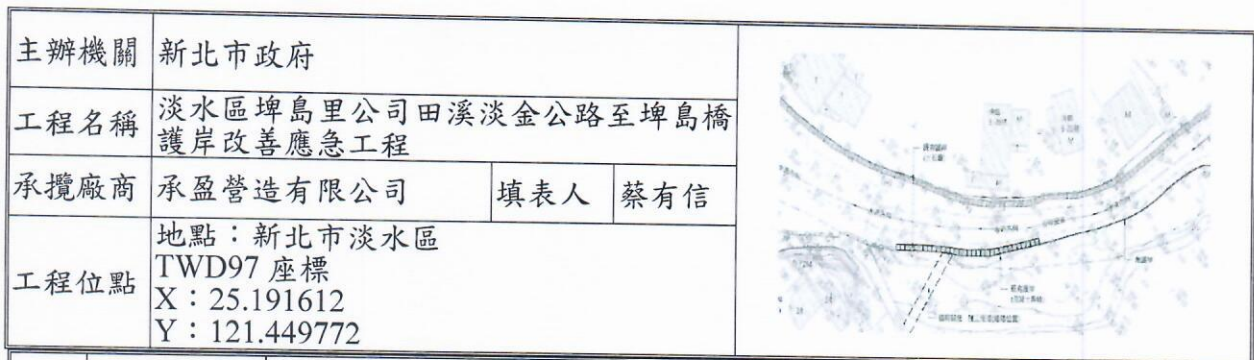 主辦機關 新北市政府
工程名稱 淡水區埤島里公司田溪淡金公路至埤島橋
護岸改善應急工程
承攬廠商 承盈營造有限公司 填表人 蔡有信
工程位點 地點：新北市淡水區
TWD97 座標
X：25.191612
Y：121.449772